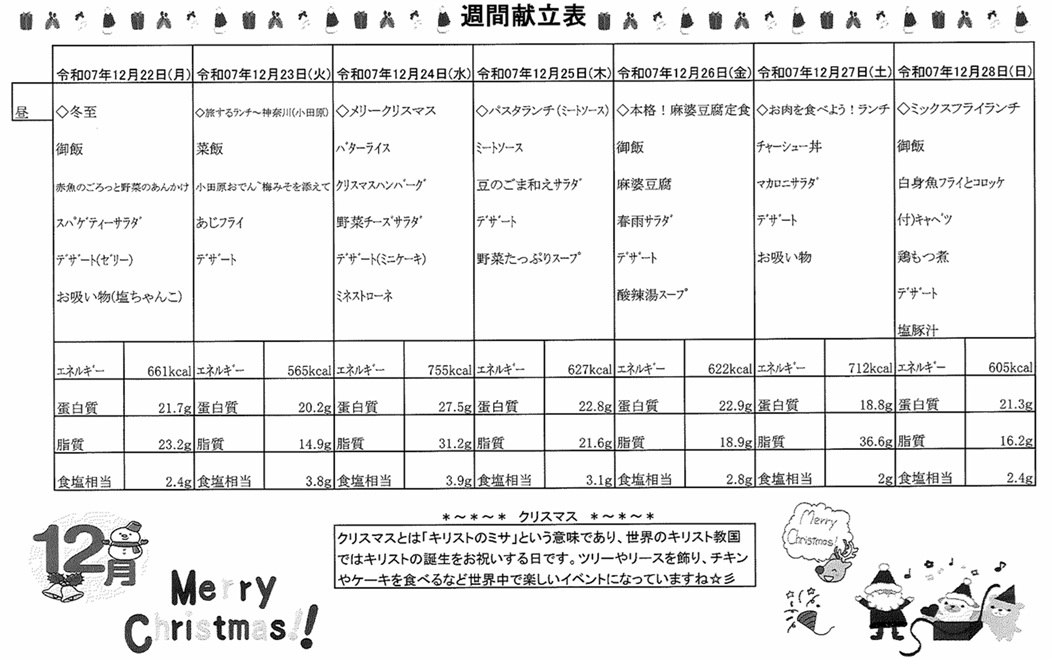 週間献立表
令和07年12月22日(月) 令和07年12月23日(火) 令和07年12月24日(水) 令和07年12月25日(木) 令和07年12月26日(金) 令和07年12月27日(土) 令和07年12月28日(日)
昼 ◇冬至 ◇旅するランチ～神奈川(小田原) ◇メリークリスマス ◇パスタランチ(ミートソース) ◇本格!麻婆豆腐定食 ◇お肉を食べよう!ランチ ◇ミックスフライランチ
御飯 菜飯 バターライス ミートソース 御飯 チャーシュー丼 御飯
赤魚のごろっと野菜のあんかけ 小田原おでん~梅みそを添えて クリスマスハンバーグ 豆のごま和えサラダ 麻婆豆腐 マカロニサラダ 白身魚フライとコロッケ
スパゲティーサラダ あじフライ 野菜チーズサラダ デザート 春雨サラダ デザート 付)キャベツ
デザート(ゼリー) デザート デザート(ミニケーキ) 野菜たっぷりスープ デザート お吸い物 鶏もつ煮
お吸い物(塩ちゃんこ) ミネストローネ 酸辣湯スープ デザート
塩豚汁
エネルギー 661kcal エネルギー 565kcal エネルギー 755kcal エネルギー 627kcal エネルギー 622kcal エネルギー 712kcal エネルギー 605kcal
蛋白質 21.7g 蛋白質 20.2g 蛋白質 27.5g 蛋白質 22.8g 蛋白質 22.9g 蛋白質 18.8g 蛋白質 21.3g
脂質 23.2g 脂質 14.9g 脂質 31.2g 脂質 21.6g 脂質 18.9g 脂質 36.6g 脂質 16.2g
食塩相当 2.4g 食塩相当 3.8g 食塩相当 3.9g 食塩相当 3.1g 食塩相当 2.8g 食塩相当 2g 食塩相当 2.4g
＊～＊～＊ クリスマス ＊～＊～＊
クリスマスとは「キリストのミサ」という意味であり、世界のキリスト教国
ではキリストの誕生をお祝いする日です。ツリーやリースを飾り、チキン
やケーキを食べるなど世界中で楽しいイベントになっていますね☆彡
12月
Merry
Christmas!!
Merry
Christmas!